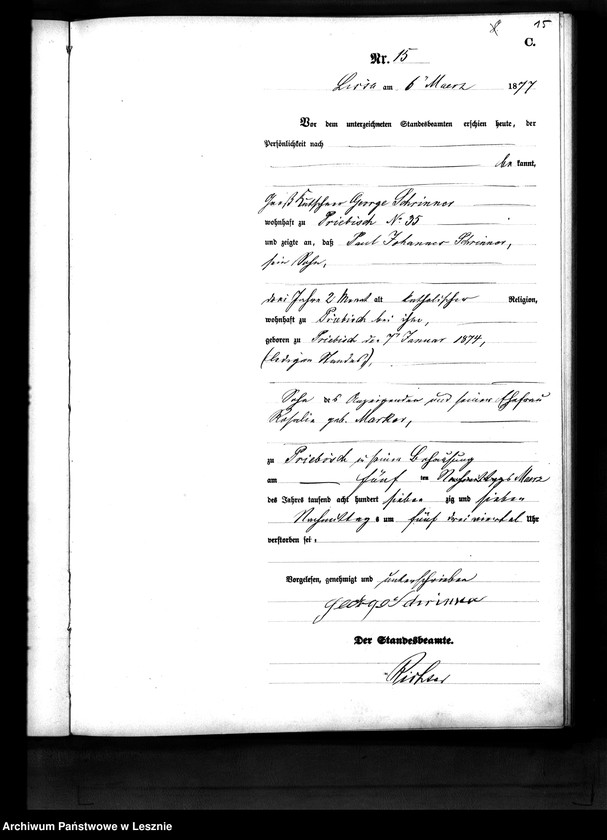 15
C.
Nr. 15
Lissa am 6ten Maerz 1877
Vor dem unterzeichneten Standesbeamten erschien heute, der
Persönlichkeit nach
be kannt,
Kutschner George Schrinner
wohnhaft zu Priebisch No 35
und zeigte an, daß Paul Johannes Schrinner,
sein Sohn,
drei Jahre 2 Monat alt katholischer Religion,
wohnhaft zu Priebisch bei ihm,
geboren zu Priebisch den 7ten Januar 1874,
(ledigen Standes),
Sohn des Anzeigenden und seiner Ehefrau
Rosalie geb. Marker,
zu Priebisch in seiner Behausung
am fünf ten Maerz
des Jahres tausend acht hundert sieben zig und sieben
Nachmittag s um fünf dreiviertel Uhr
verstorben sei.
Vorgelesen, genehmigt und unterschrieben
George Schrinner
Der Standesbeamte.
Archiwum Państwowe w Lesznie